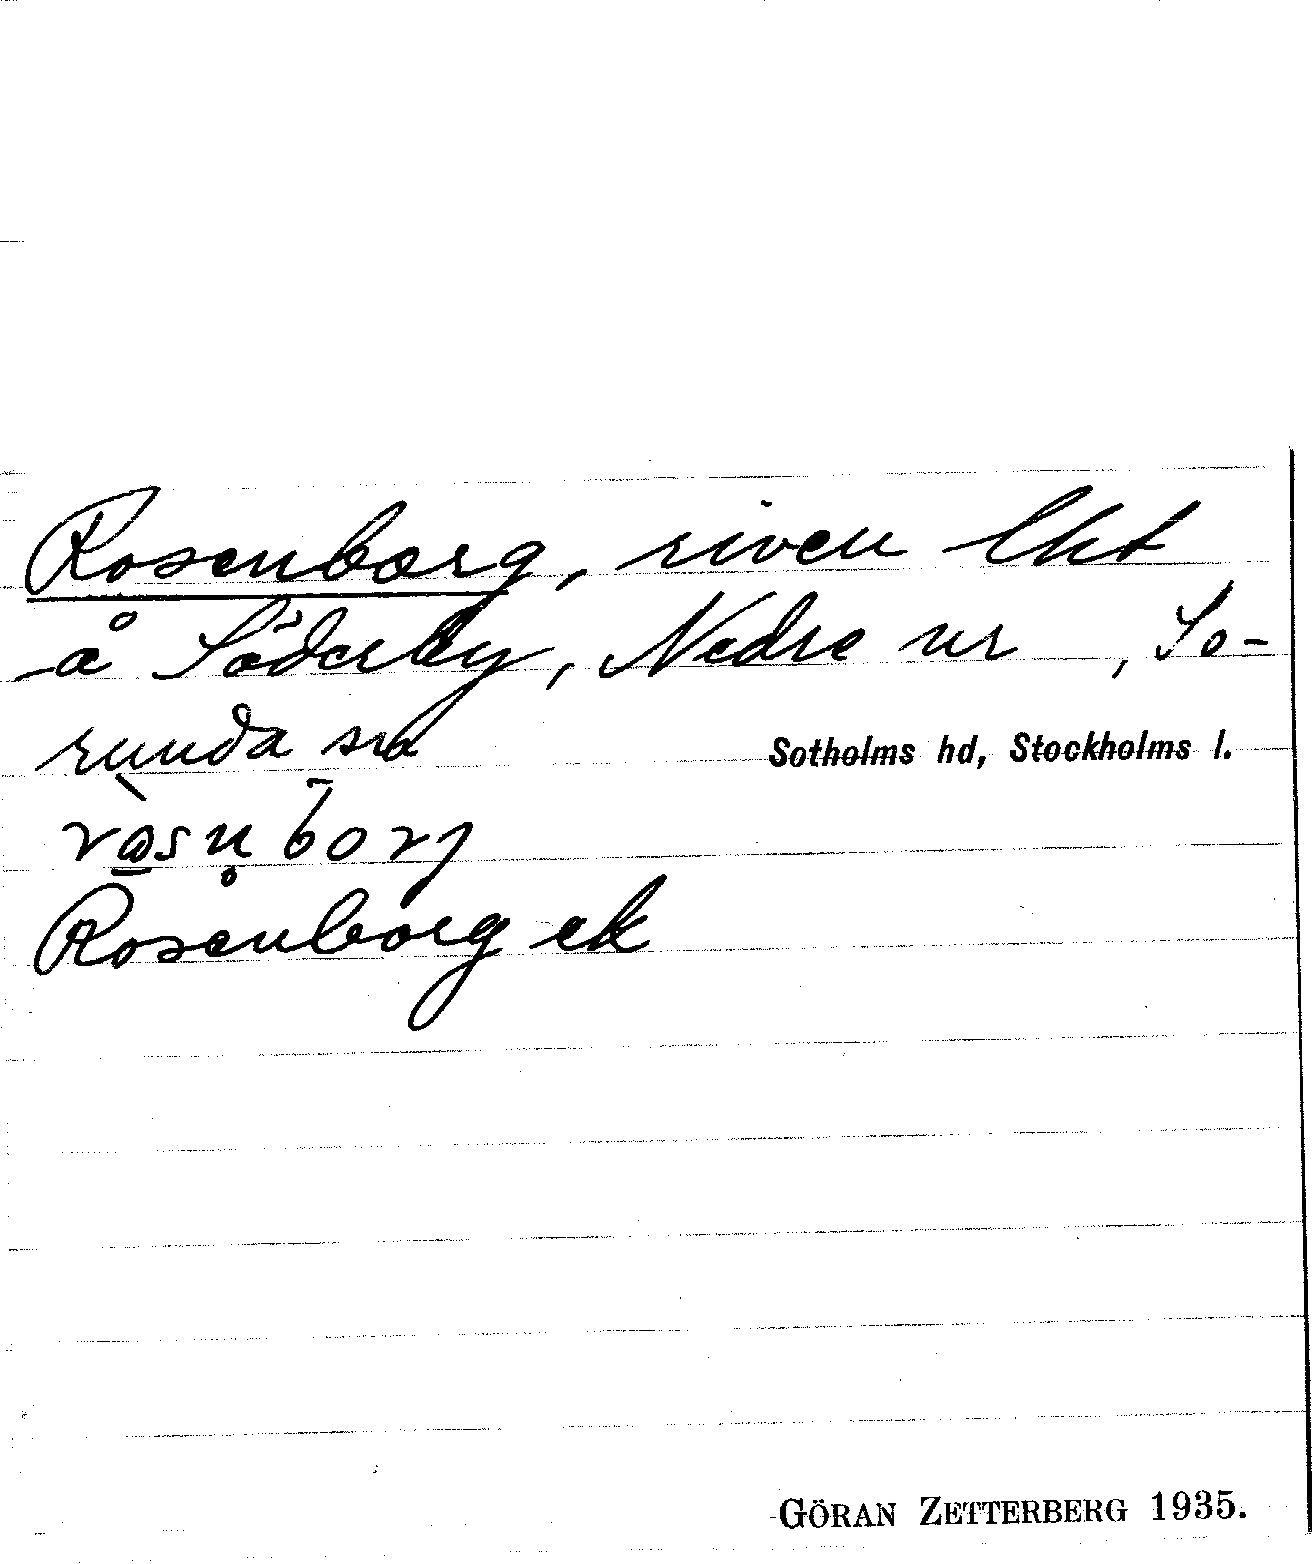 Rosenborg, riven lht
å Söderby, Nedre nr , So-
runda sn Sotholms hd, Stockholms l.
Rosenborg ek
GÖRAN ZETTERBERG 1935.